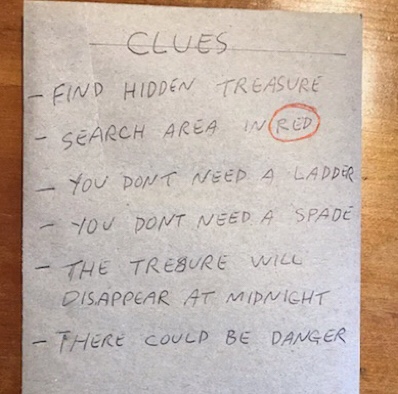 CLUES
- FIND HIDDEN TREASURE
- SEARCH AREA IN RED
- YOU DONT NEED A LADDER
- YOU DONT NEED A SPADE
- THE TREASURE WILL
DISAPPEAR AT MIDNIGHT
- THERE COULD BE DANGER